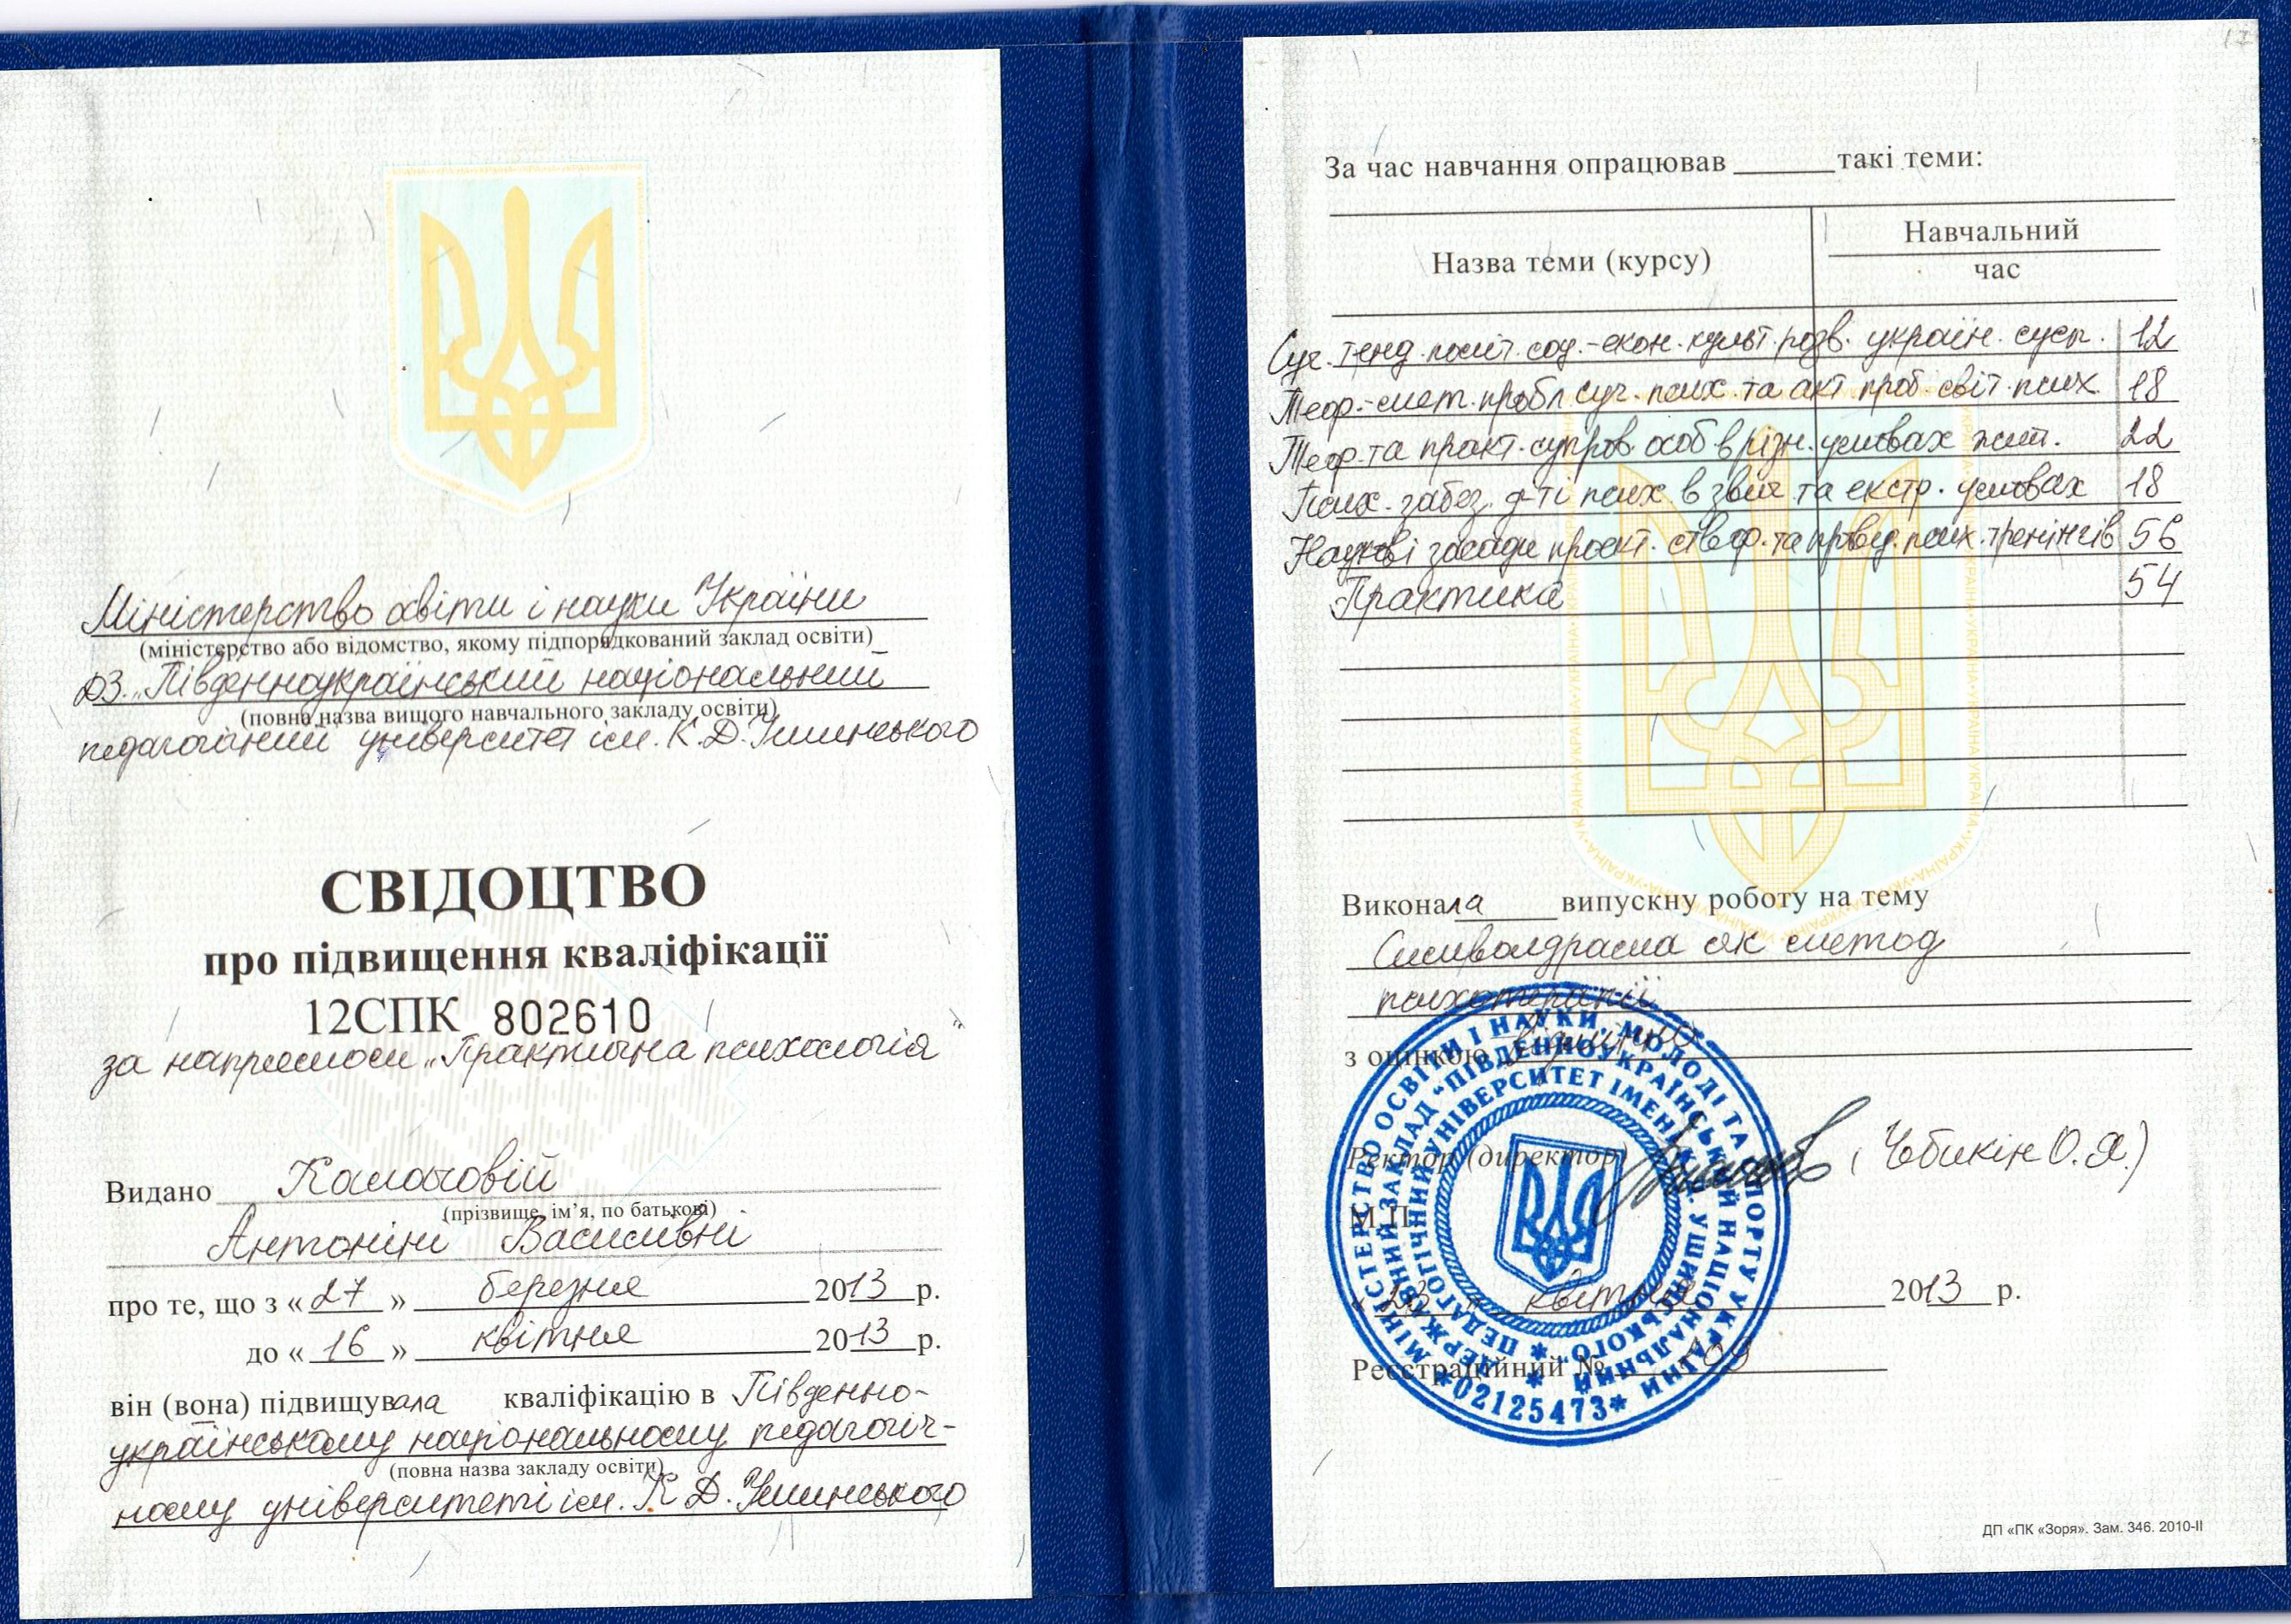 Міністерство освіти і науки України
(міністерство або відомство, якому підпорядкований заклад освіти)
ДЗ „Південноукраїнський національний
(повна назва вищого навчального закладу освіти)
педагогічний університет ім. К.Д. Ушинського
СВІДОЦТВО
про підвищення кваліфікації
12СПК 802610
за напрямом „Практична психологія"
Видано Калачовій
(прізвище, ім’я, по батькові)
Антоніні Василівні
про те, що з « 27 » березня 2013 р.
до « 16 » квітня 2013 р.
він (вона) підвищувала кваліфікацію в Південно-
українському національному педагогіч-
(повна назва закладу освіти)
ному університеті ім. К.Д. Ушинського
За час навчання опрацював ______ такі теми:
Назва теми (курсу)
Навчальний
час
Суч. тенд. політ. соц.-екон. культ. розв. україн. сусп. 12
Теор.-мет. пробл. суч. псих. та акт. проб. світ. псих. 18
Теор. та практ. супров. особ в різн. умовах жит. 22
Псих. забез. д-ті псих в звич та екстр. умовах 18
Наукові засади проект. створ. та провед. псих. тренінгів 56
Практика 54
Виконала випускну роботу на тему
Символдрама як метод
психотерапії
з оцінкою відмінно
Ректор (директор) (Чебикін О.Я.)
М.П.
« 23 » квітня 2013 р.
Реєстраційний №
МІНІСТЕРСТВО ОСВІТИ І НАУКИ, МОЛОДІ ТА СПОРТУ УКРАЇНИ
ДЕРЖАВНИЙ ЗАКЛАД "ПІВДЕННОУКРАЇНСЬКИЙ НАЦІОНАЛЬНИЙ
ПЕДАГОГІЧНИЙ УНІВЕРСИТЕТ ІМЕНІ К.Д. УШИНСЬКОГО"
*02125473*
ДП «ПК «Зоря». Зам. 346. 2010-II